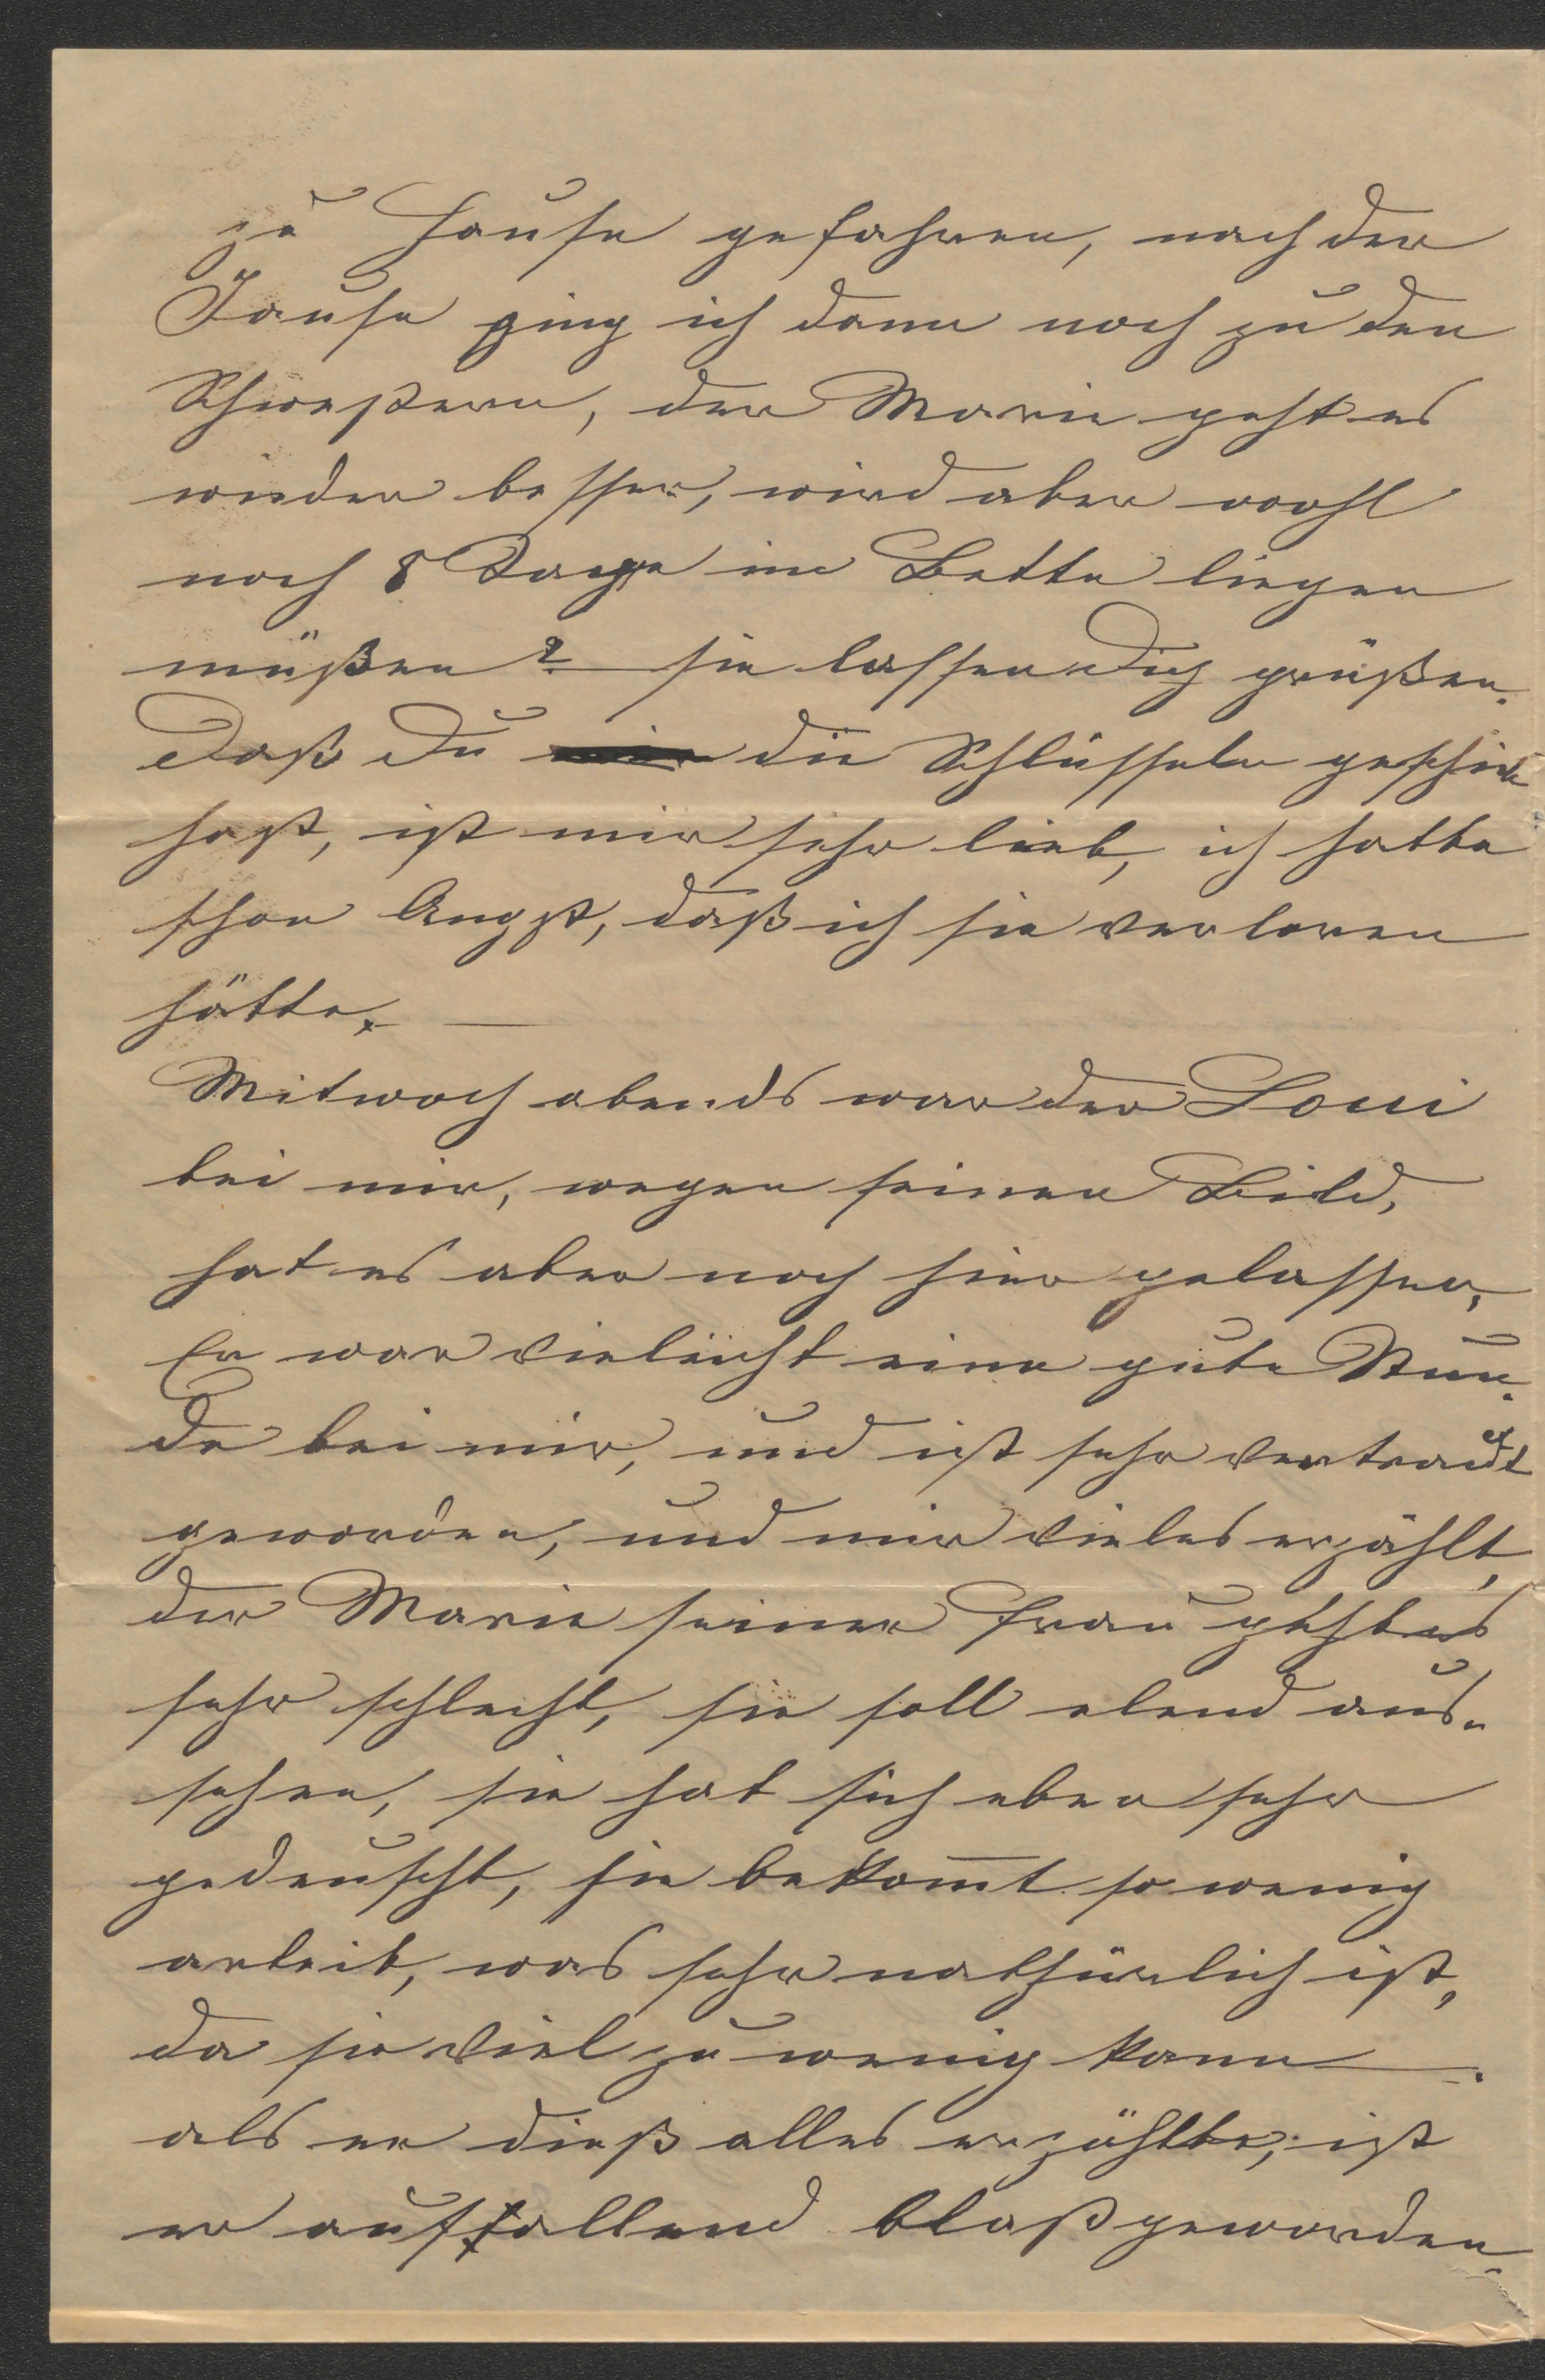 zu Hause gefahren, nach der
Jause ging ich dann noch zu den
Schwestern, der Marie geht es
wieder besser, wird aber wohl
noch 8 Tage im Bette liegen
müßen? sie lassen Dich grüßen.
Daß Du die Schlüsseln geschickt
hast, ist mir sehr lieb, ich hatte
schon Angst, daß ich sie verloren
hätte. —
Mitwoch abends war der Loui
bei mir, wegen seinen Bild,
hat es aber noch hier gelassen,
Er war vieleicht eine gute Stun-
de bei mir, und ist sehr vertraut
geworden, und mir vieles erzählt,
der Marie seiner Frau geht es
sehr schlecht, sie soll elend aus-
sehen, sie hat sich eben sehr
gedeuscht, sie bekom̅t so wenig
arbeit, was sehr nathürlich ist,
da sie viel zu wenig kann —.
als er dieß alles erzählte, ist
er auffallend blaß geworden.